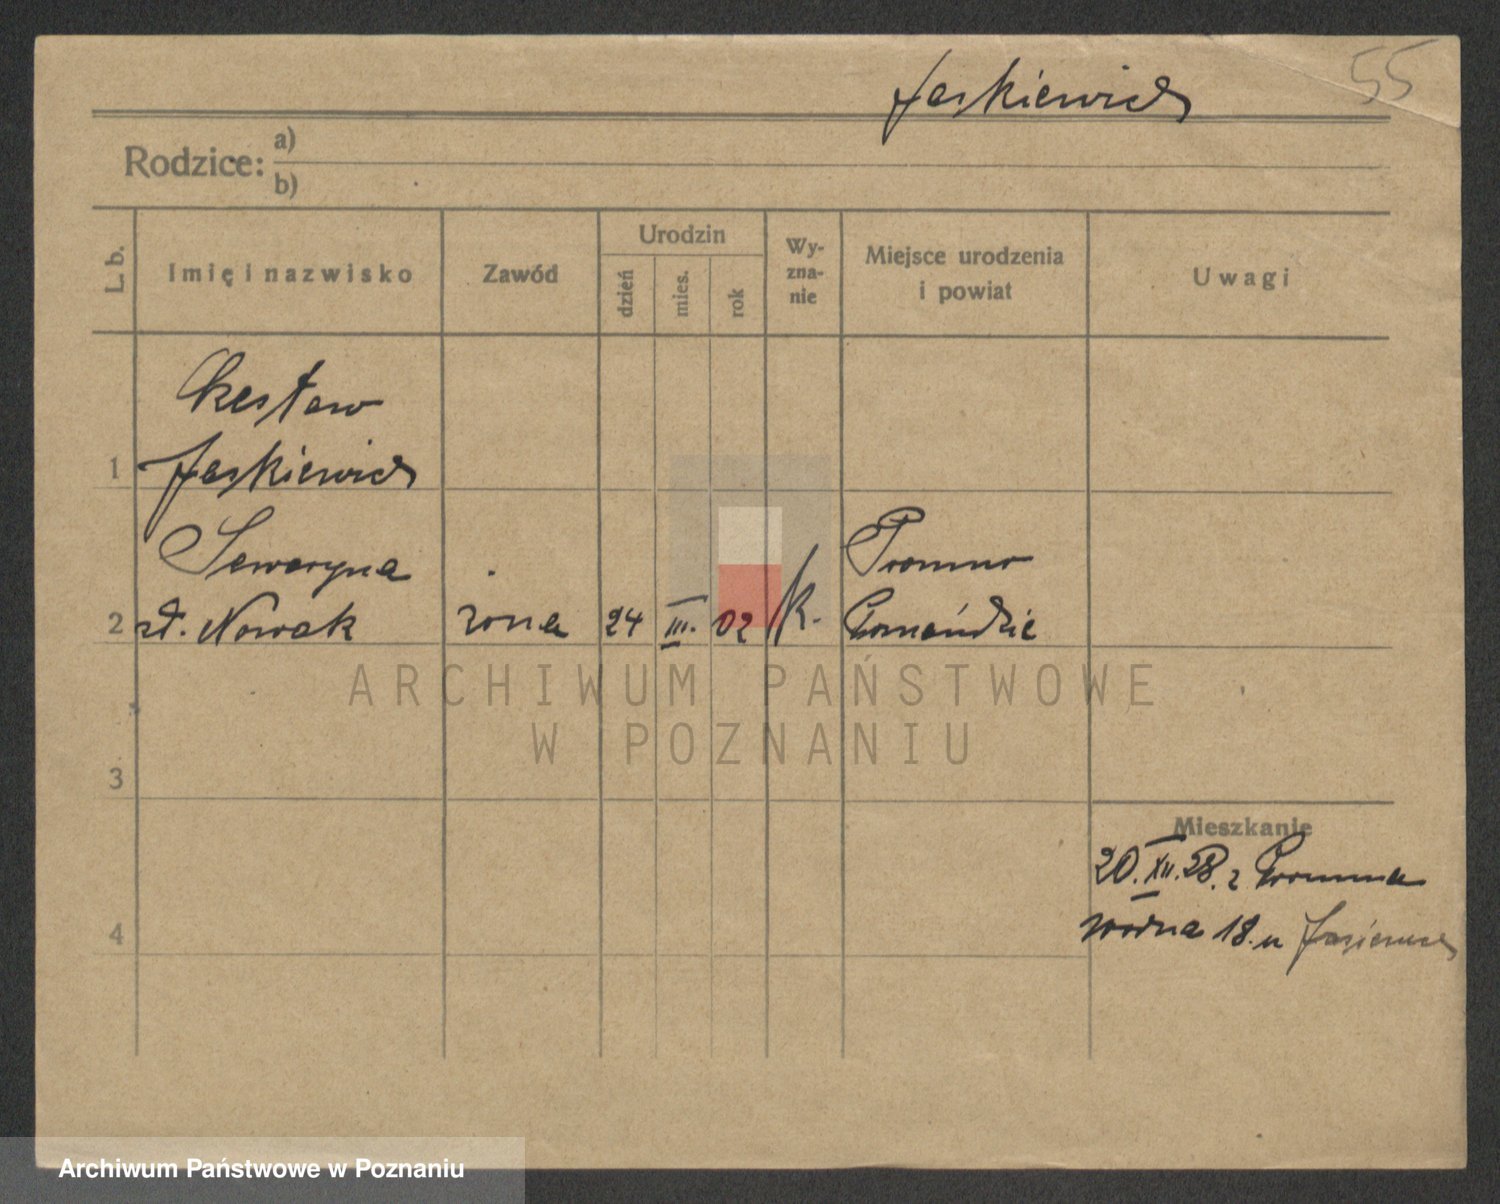 Jaskiewicz
55
Rodzice: a)
b)
L. b.
Imię i nazwisko
Zawód
Urodzin
dzień
mies.
rok
Wy-
zna-
nie
Miejsce urodzenia
i powiat
Uwagi
Czesław
1 Jaskiewicz
Seweryna
2 zd. Nowak
żona
24
III.
02
rk.
Promno
3
4
Mieszkanie
20.XII.28. z Promna
wodna 18. u
ARCHIWUM PAŃSTWOWE
W POZNANIU
Archiwum Państwowe w Poznaniu